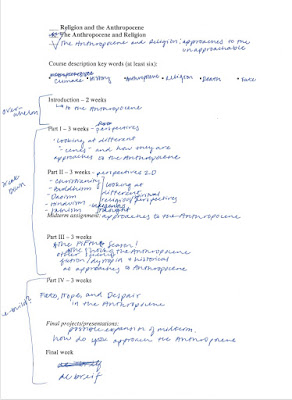 Religion and the Anthropocene
The Anthropocene and Religion
The Anthropocene and Religion: approaches to the
unapproachable
Course description key words (at least six):
Climate • History • Anthropocene • Religion • Death
Introduction – 2 weeks
to the Anthropocene
Part I – 3 weeks - perspectives
- looking at different
"-cenes" and how they are
approaches to the Anthropocene
break
down
Part II – 3 weeks - perspectives 2.0
- Christianity
- Buddhism
- Daoism
- Hinduism
looking at
different
religious perspectives
Midterm assignment: approaches to the Anthropocene
Part III – 3 weeks
the Fifth Season!
the Anthropocene
as approaches to Anthropocene
Part IV – 3 weeks
Hope, and Despair
in the Anthropocene
Final projects/presentations:
expansion of midterm.
how do you approach the Anthropocene
Final week
debrief